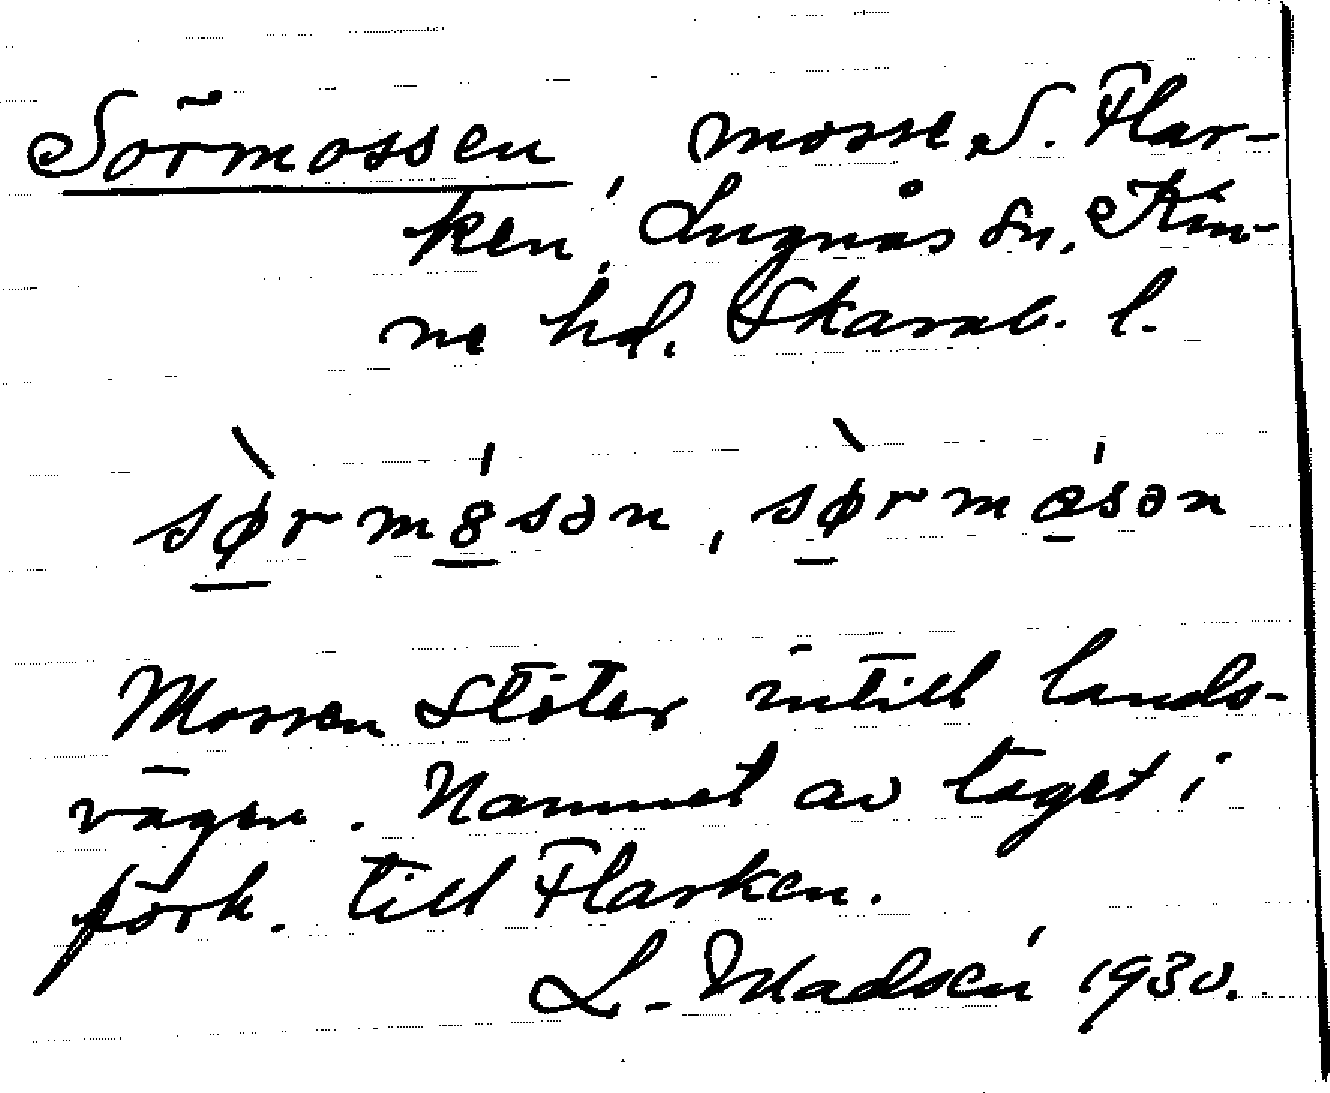 Sörmossen, mosse S. Flar-
ken, Lugnås sn, Kin-
ne hd. Skarab. l.
sø̀rmósən, sø̀rmǿsən
Mossen stöter intill lands-
vägen. Namnet av läget i
förh. till Flarken.
L. Madsén 1930.